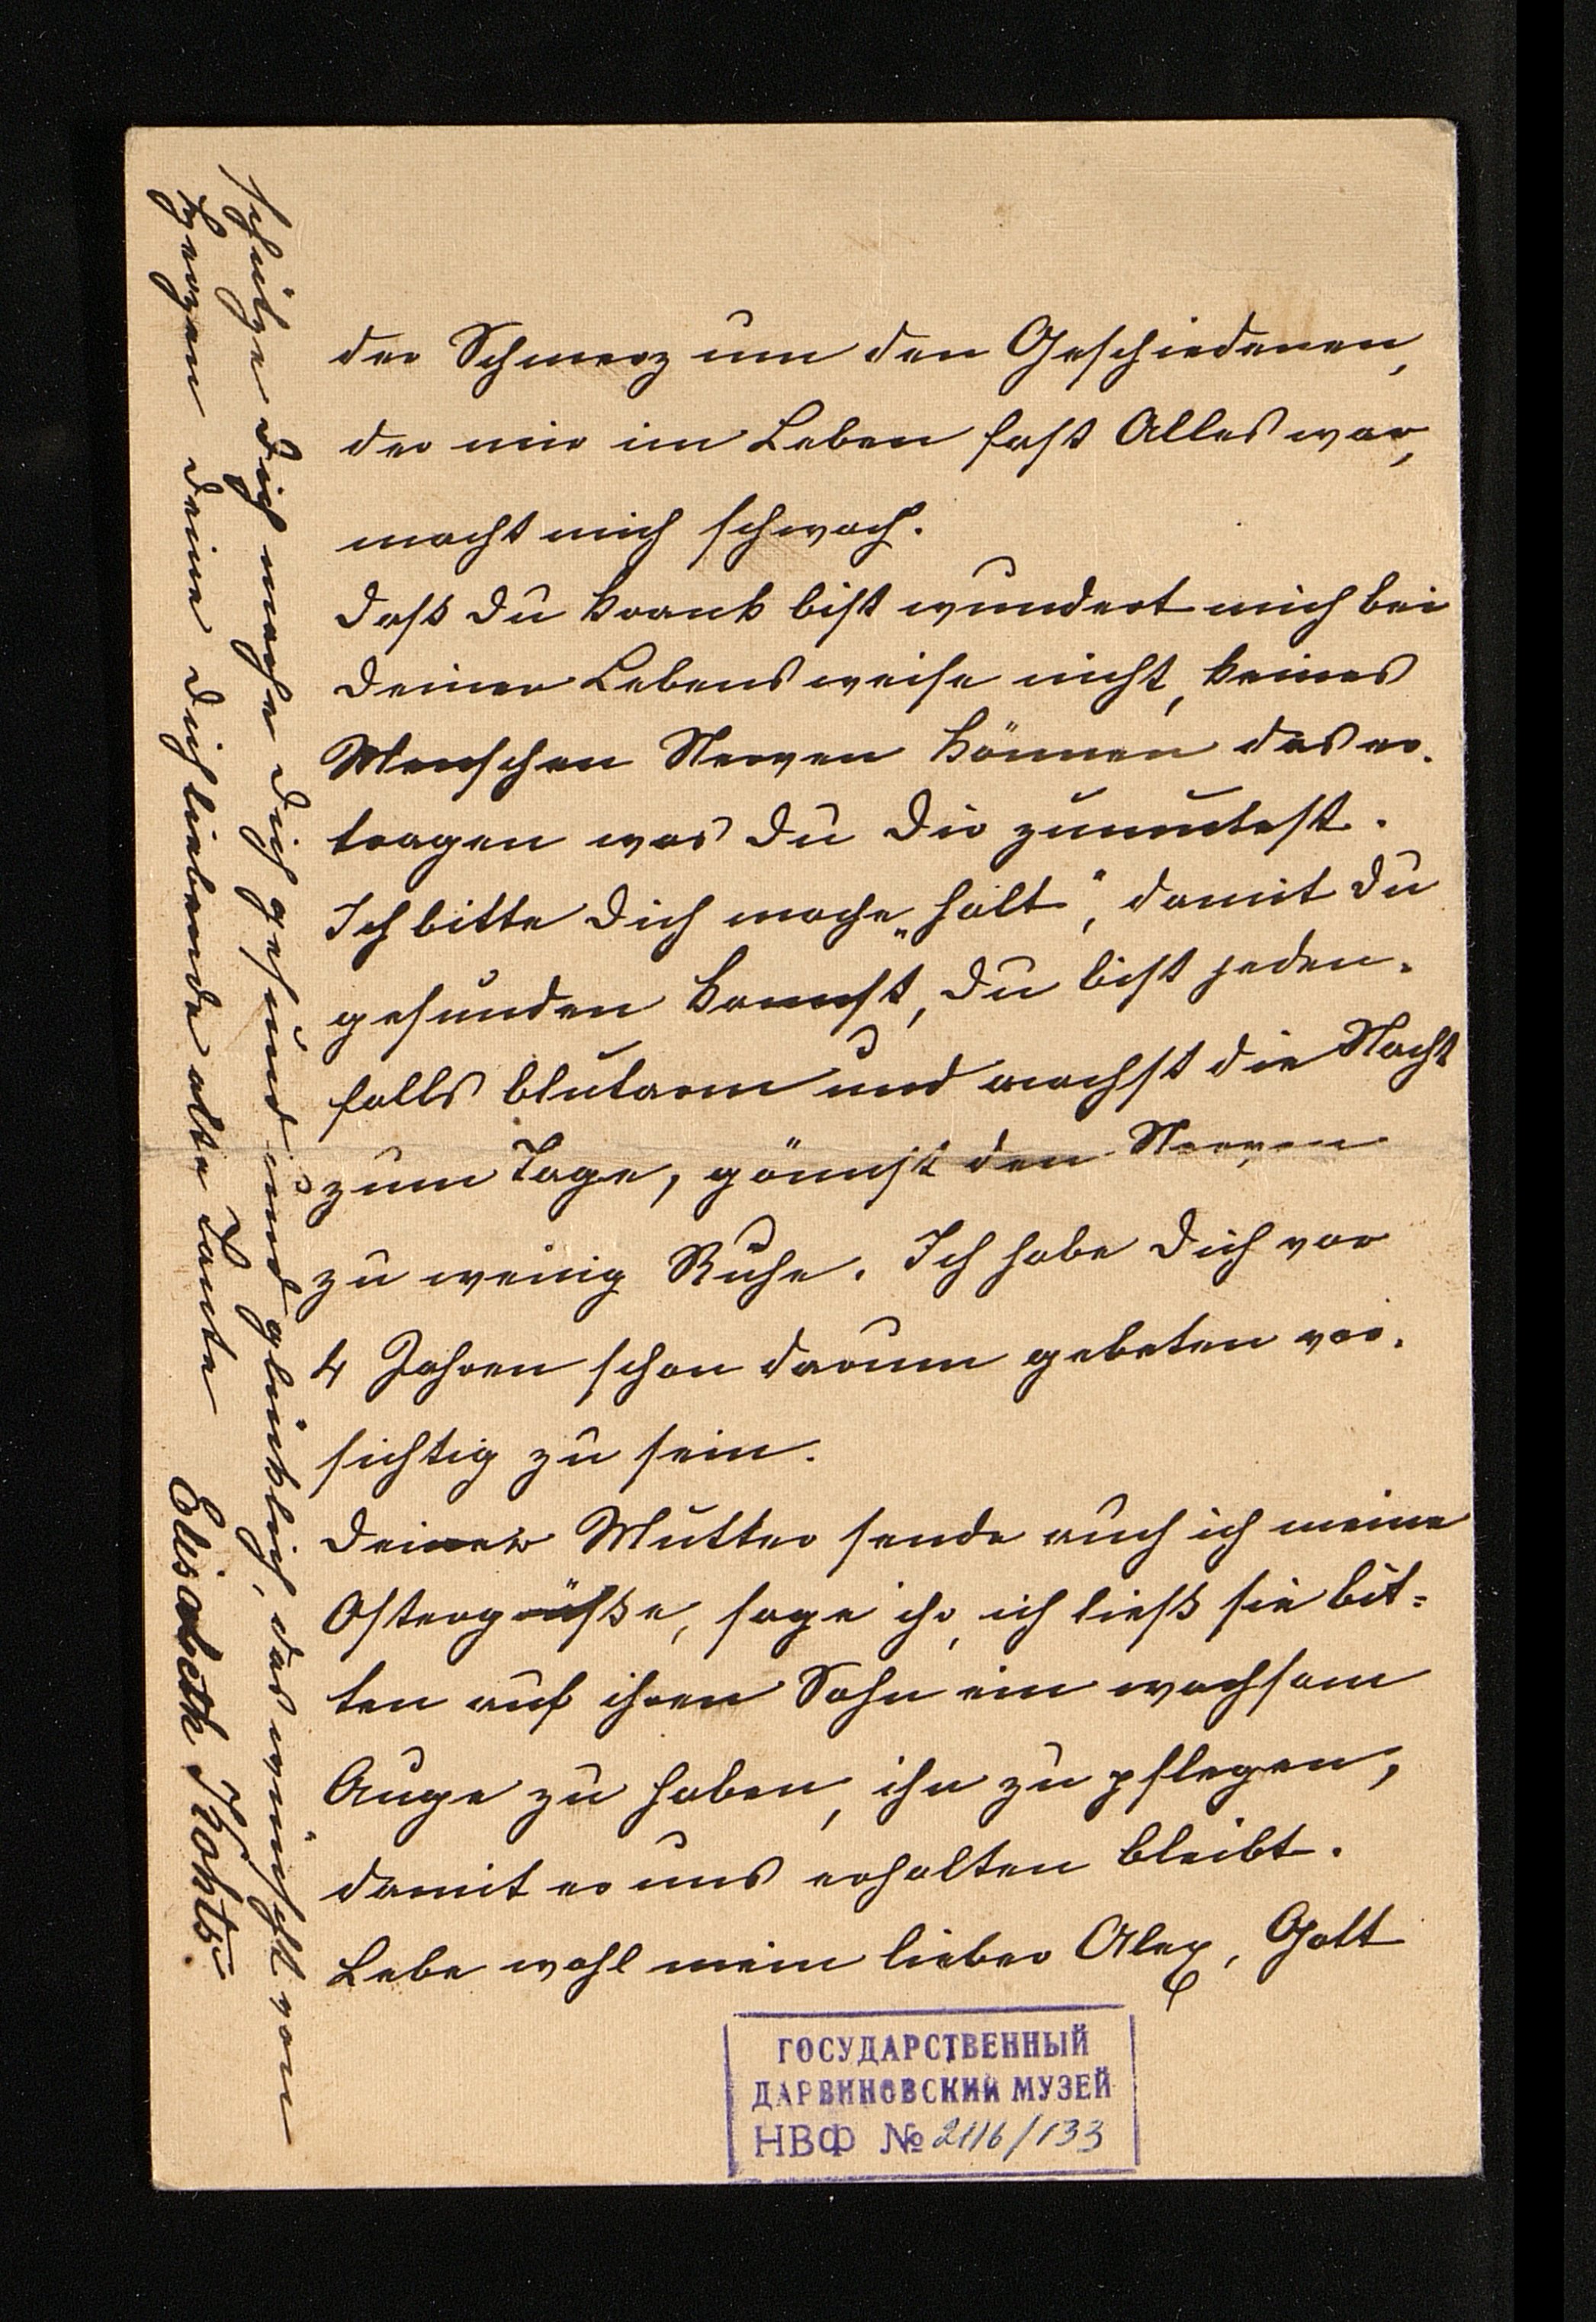 der Schmerz um den Geschiedenen,
der mir im Leben fast Alles war,
macht mich schwach.
Daß Du krank bist wundert mich bei
Deiner Lebensweise nicht, keines
Menschen Nerven können das er-
tragen was Du Dir zumutest.
Ich bitte Dich mache „halt", damit Du
gesunden kannst, Du bist jeden-
falls blutarm und machst die Nacht
zum Tage, gönnst den Nerven
zu wenig Ruhe. Ich habe Dich vor
4 Jahren schon darum gebeten vor-
sichtig zu sein.
Deiner Mutter sende auch ich meine
Ostergrüße, sage ihr, ich ließ sie bit=
ten auf ihren Sohn ein wachsam
Auge zu haben, ihn zu pflegen,
damit er uns erhalten bleibt.
Lebe wohl mein lieber Alex, Gott
schütze Dich mache Dich gesund und glücklich, das wünscht von
Herzen Deine Dich liebende alte Tante Elisabeth Kohts
ГОСУДАРСТВЕННЫЙ
ДАРВИНОВСКИЙ МУЗЕЙ
НВФ № 2116/133